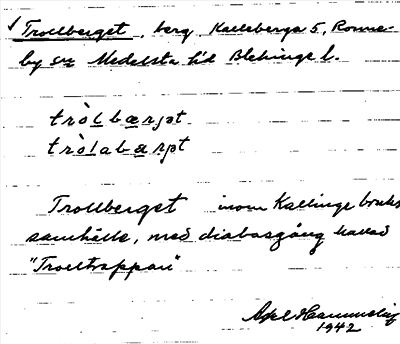 √ Trollberget, berg Kalleberga 5, Ronne-
by sn Medelsta hd Blekinge l.
tròlbærjət
tròlabærjət
Trollberget inom Kallinge bruks
samhälle, med diabasgång kallad
"Trolltrappan"
Axel
1942